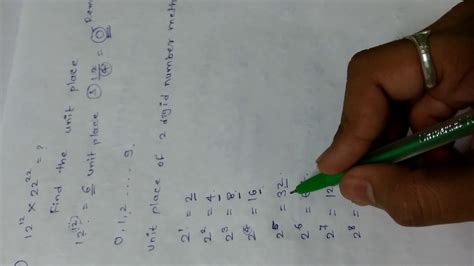 12¹² × 22²² = ?
Find the unit place
12⁽¹²⁾ = 6 unit place ③ 12/4 = 0
0, 1, 2 ...... 9.
unit place of 2 digid number
2¹ = 2
2² = 4
2³ = 8
2⁴ = 16
2⁵ = 32
2⁶ =
2⁷ = 12
2⁸ =